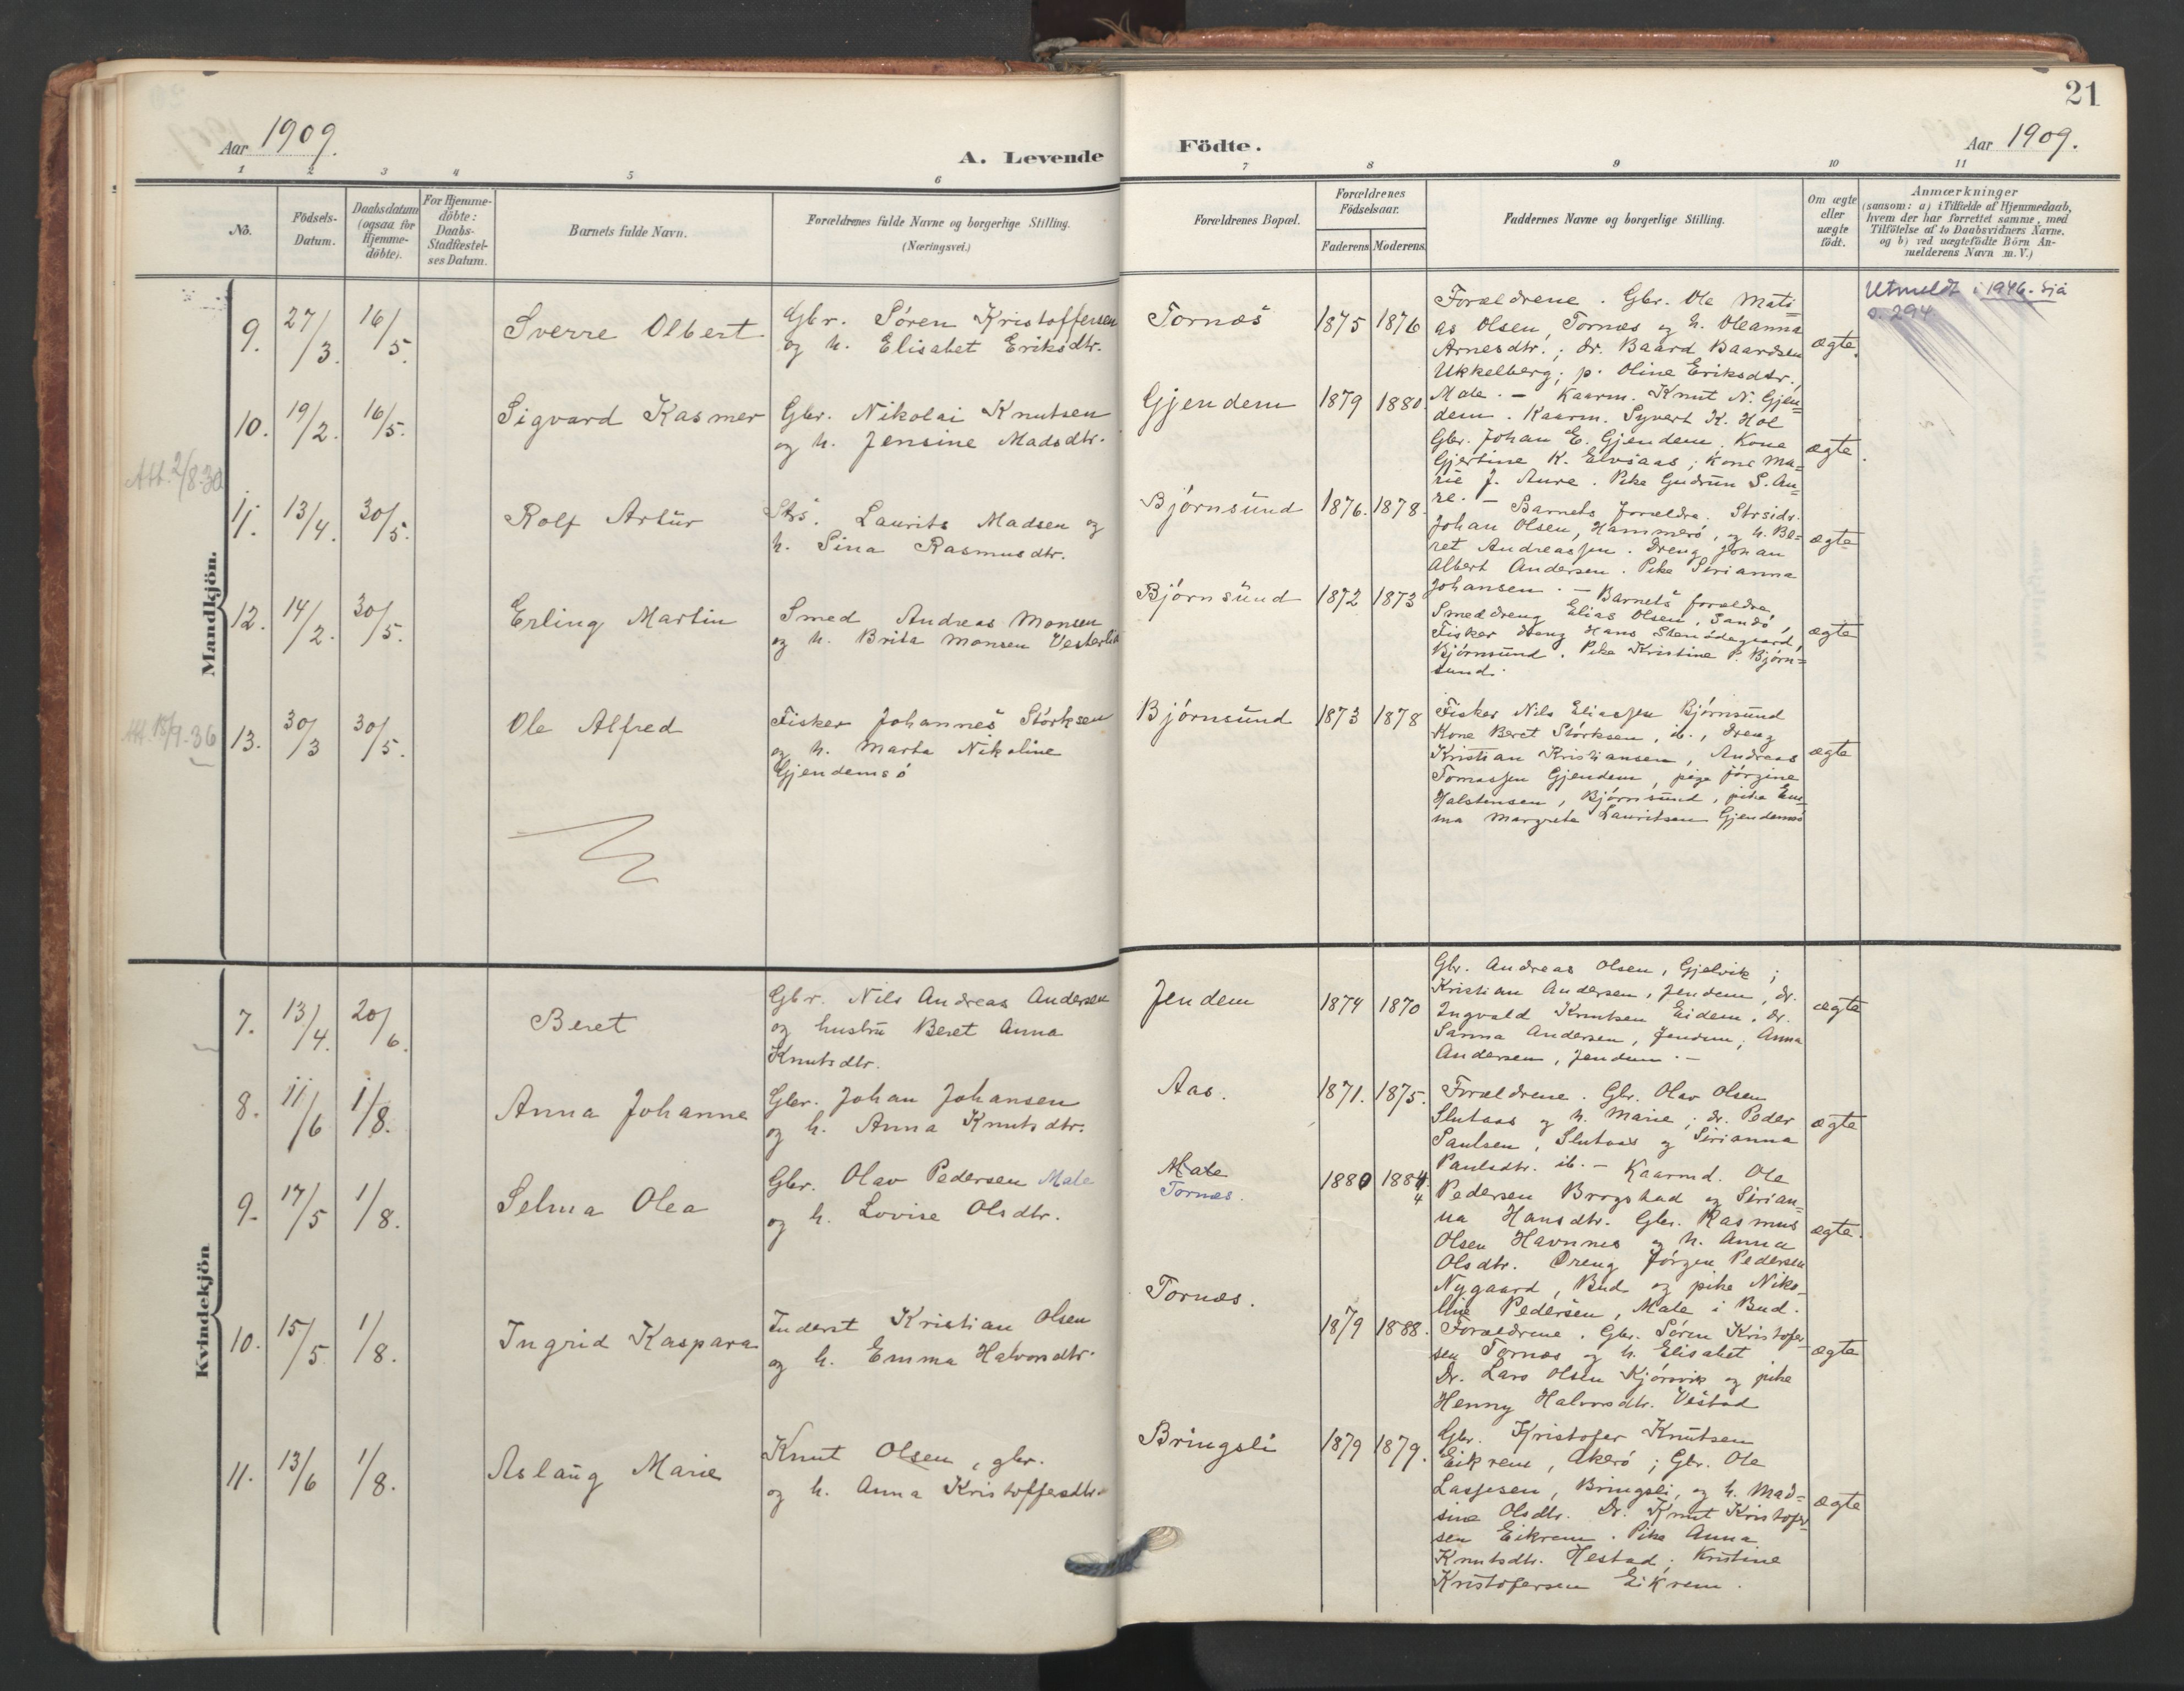 21
Aar 1909.
A. Levende
Födte.
Aar 1909.
1
2
3
4
5
6
7
8
9
10
11
No.
Födsels-
Datum.
Daabsdatum
(ogsaa for
Hjemme-
döbte).
For Hjemme-
döbte:
Daabs-
Stadfæstel-
ses Datum.
Barnets fulde Navn.
Forældrenes fulde Navne og borgerlige Stilling.
(Næringsvei.)
Forældrenes Bopæl.
Forældrenes
Födselsaar.
Faderens
Moderens
Faddernes Navne og borgerlige Stilling.
Om ægte
eller
uægte
födt.
Anmærkninger
(saasom: a) i Tilfælde af Hjemmedaab,
hvem der har forrettet samme, med
Tilföielse af to Daabsvidners Navne,
og b) ved uægtefödte Börn An-
melderens Navn m.V.)
Mandkjön.
9.
27/3.
16/5.
Sverre Olbert
Gbr. Sören Kristoffersen
og h. Elisabet Eriksdtr.
Tornæs
1875
1876
Forældrene. Gbr. Ole Mati
as Olsen, Tornæs og h. Oleanna
Arnesdtr.; dr. Baard Baardsen
Ukkelberg; p. Oline Eriksdtr.,
Male. –
ægte.
Utmeldt i 1946. Sjå
s. 294.
10.
19/2.
16/5.
Sigvard Kasmer
Gbr. Nikolai Knutsen
og h. Jensine Madsdtr.
Gjendem
1879
1880.
Kaarm. Knut N. Gjen=
dem. Kaarm. Syvert K. Hol
Gbr. Johan E. Gjendem. Kone
Gjertine K. Elvsaas; kone Ma=
rie J. Aure. Pike Gudrun S. Au=
re. –
ægte.
Att. 2/8-30
11.
13/4.
30/5.
Rolf Artur
Strs. Laurits Madsen og
h. Sina Rasmusdtr.
Björnsund
1876.
1878.
Barnets forældre. Strsidr.
Johan Olsen, Hammerö, og h. Be=
ret Andreassen. Dreng Johan
Albert Andersen. Pike Serianna
Johansen. –
ægte
12.
14/2.
30/5.
Erling Martin
Smed Andreas Monsen
og h. Brita Monsen Vesterlid
Björnsund
1872
1873
Barnets forældre,
Smeddreng Elias Olsen, Sandö,
Fisker dreng Hans Stenödegaard,
Björnsund. Pike Kristine P. Björn=
sund.
ægte
Att. 15/9-36
13.
30/3
30/5.
Ole Alfred
Fisker Johannes Störksen
og h. Marta Nikoline
Gjendemsö
Björnsund
1873
1878
Fisker Nils Eliassen Björnsund
Kone Beret Störksen, ib., dreng
Kristian Kristiansen, Andreas
Tomassen Gjendem, pige Jörgine
Halstensen, Björnsund, pike Em=
ma Margrete Lauritsen Gjendemsö
ægte
Kvindekjön
7.
13/4.
20/6.
Beret
Gbr. Nils Andreas Andersen
og hustru Beret Anna
Knutsdtr.
Jendem
1874
1870
Gbr. Andreas Olsen, Gjelvik;
Kristian Andersen, Jendem, dr.
Ingvald Knutsen Eidem. dr.
Sanna Andersen, Jendem; Anna
Andersen, Jendem. –
ægte
8.
11/6
1/8.
Anna Johanne
Gbr. Johan Johansen
og h. Anna Knutsdtr.
Aas.
1871.
1875.
Forældrene. Gbr. Olav Olsen
Slutaas og h. Marie; dr. Peder
Paulsen, Slutaas og Serianna
Paulsdtr. ib. –
ægte
9.
17/5
1/8.
Selma Olea
Gbr. Olav Pedersen Male
og h. Lovise Olsdtr.
Male
Tornæs.
1880
1884.
4
Kaarmd. Ole
Pedersen Brogstad og Serian=
na Hansdtr. Gbr. Rasmus
Olsen Havnnes og h. Anna
Olsdtr. Dreng Jörgen Pedersen
Nygaard, Bud og pike Niko-
line Pedersen, Male i Bud.
ægte.
10.
15/5
1/8.
Ingrid Kaspara
Inderst Kristian Olsen
og h. Emma Halvorsdtr.
Tornæs.
1879
1888.
Forældrene. Gbr. Sören Kristofer
sen Tornæs og h. Elisabet
Dr. Lars Olsen Kjörsvik og pike
Henny Halvorsdtr. Vestad
ægte
11.
13/6
1/8.
Aslaug Marie
Knut Olsen, gbr.
og h. Anna Kristoffersdtr.
Bringsli
1879
1879.
Gbr. Kristofer Knutsen
Eikrem, Akerö; Gbr. Ole
Lassesen, Bringsli, og h. Mad=
sine Olsdtr. Dr. Knut Kristofer-
sen Eikrem. Pike Anna
Knutsdtr. Hestad; Kristine
Kristofersen Eikrem.
ægte